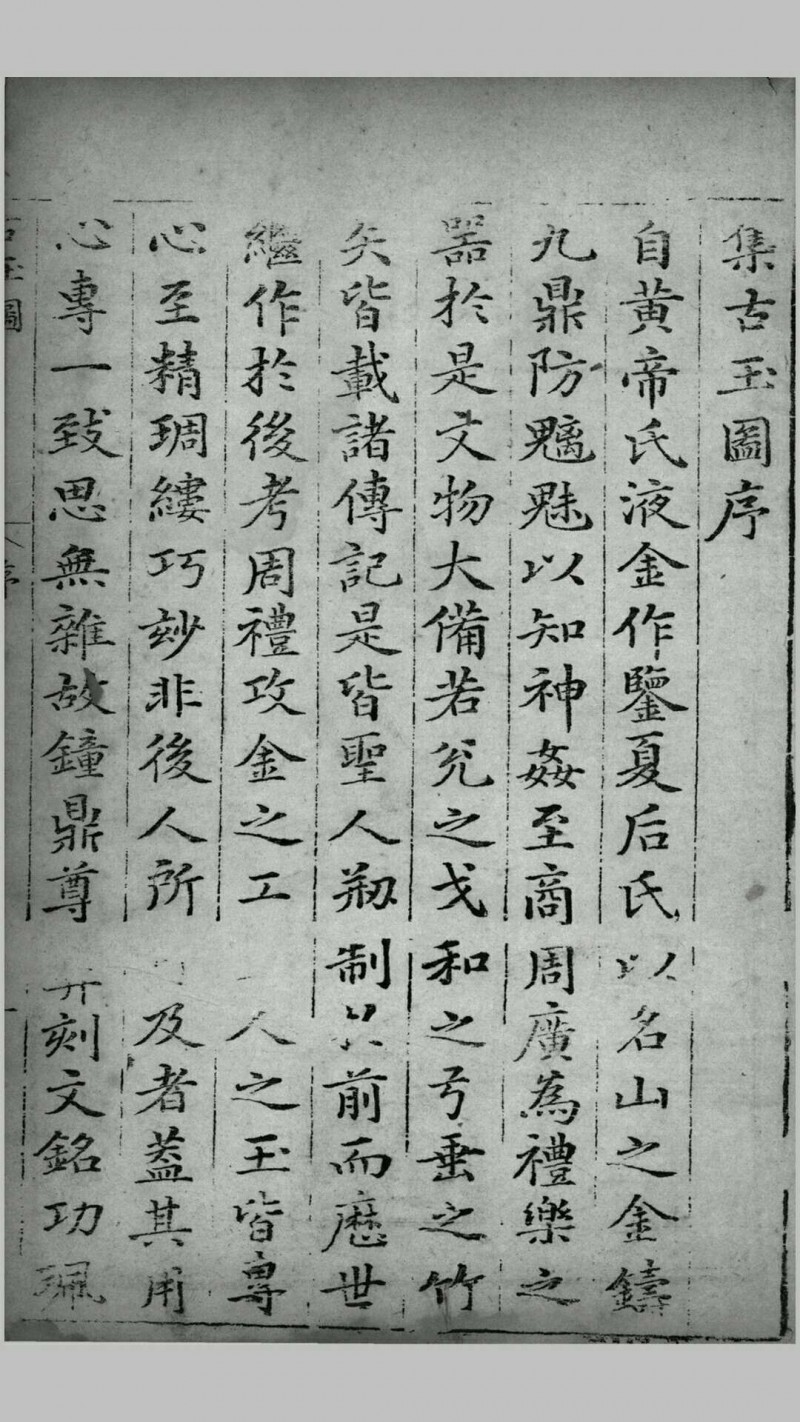 集古玉圖序
自黄帝氏液金作鑒夏后氏以名山之金鑄
九鼎防魑魅以知神姦至商周廣為禮樂之
器於是文物大備若兊之戈和之弓垂之竹
矢皆載諸傳記是皆聖人剏制於前而歷世
繼作於後考周禮攻金之工人之玉皆專
心至精琱縷巧玅非後人所及者葢其用
心專一致思無雜故鐘鼎尊刻文銘功珮
古玉圖
序